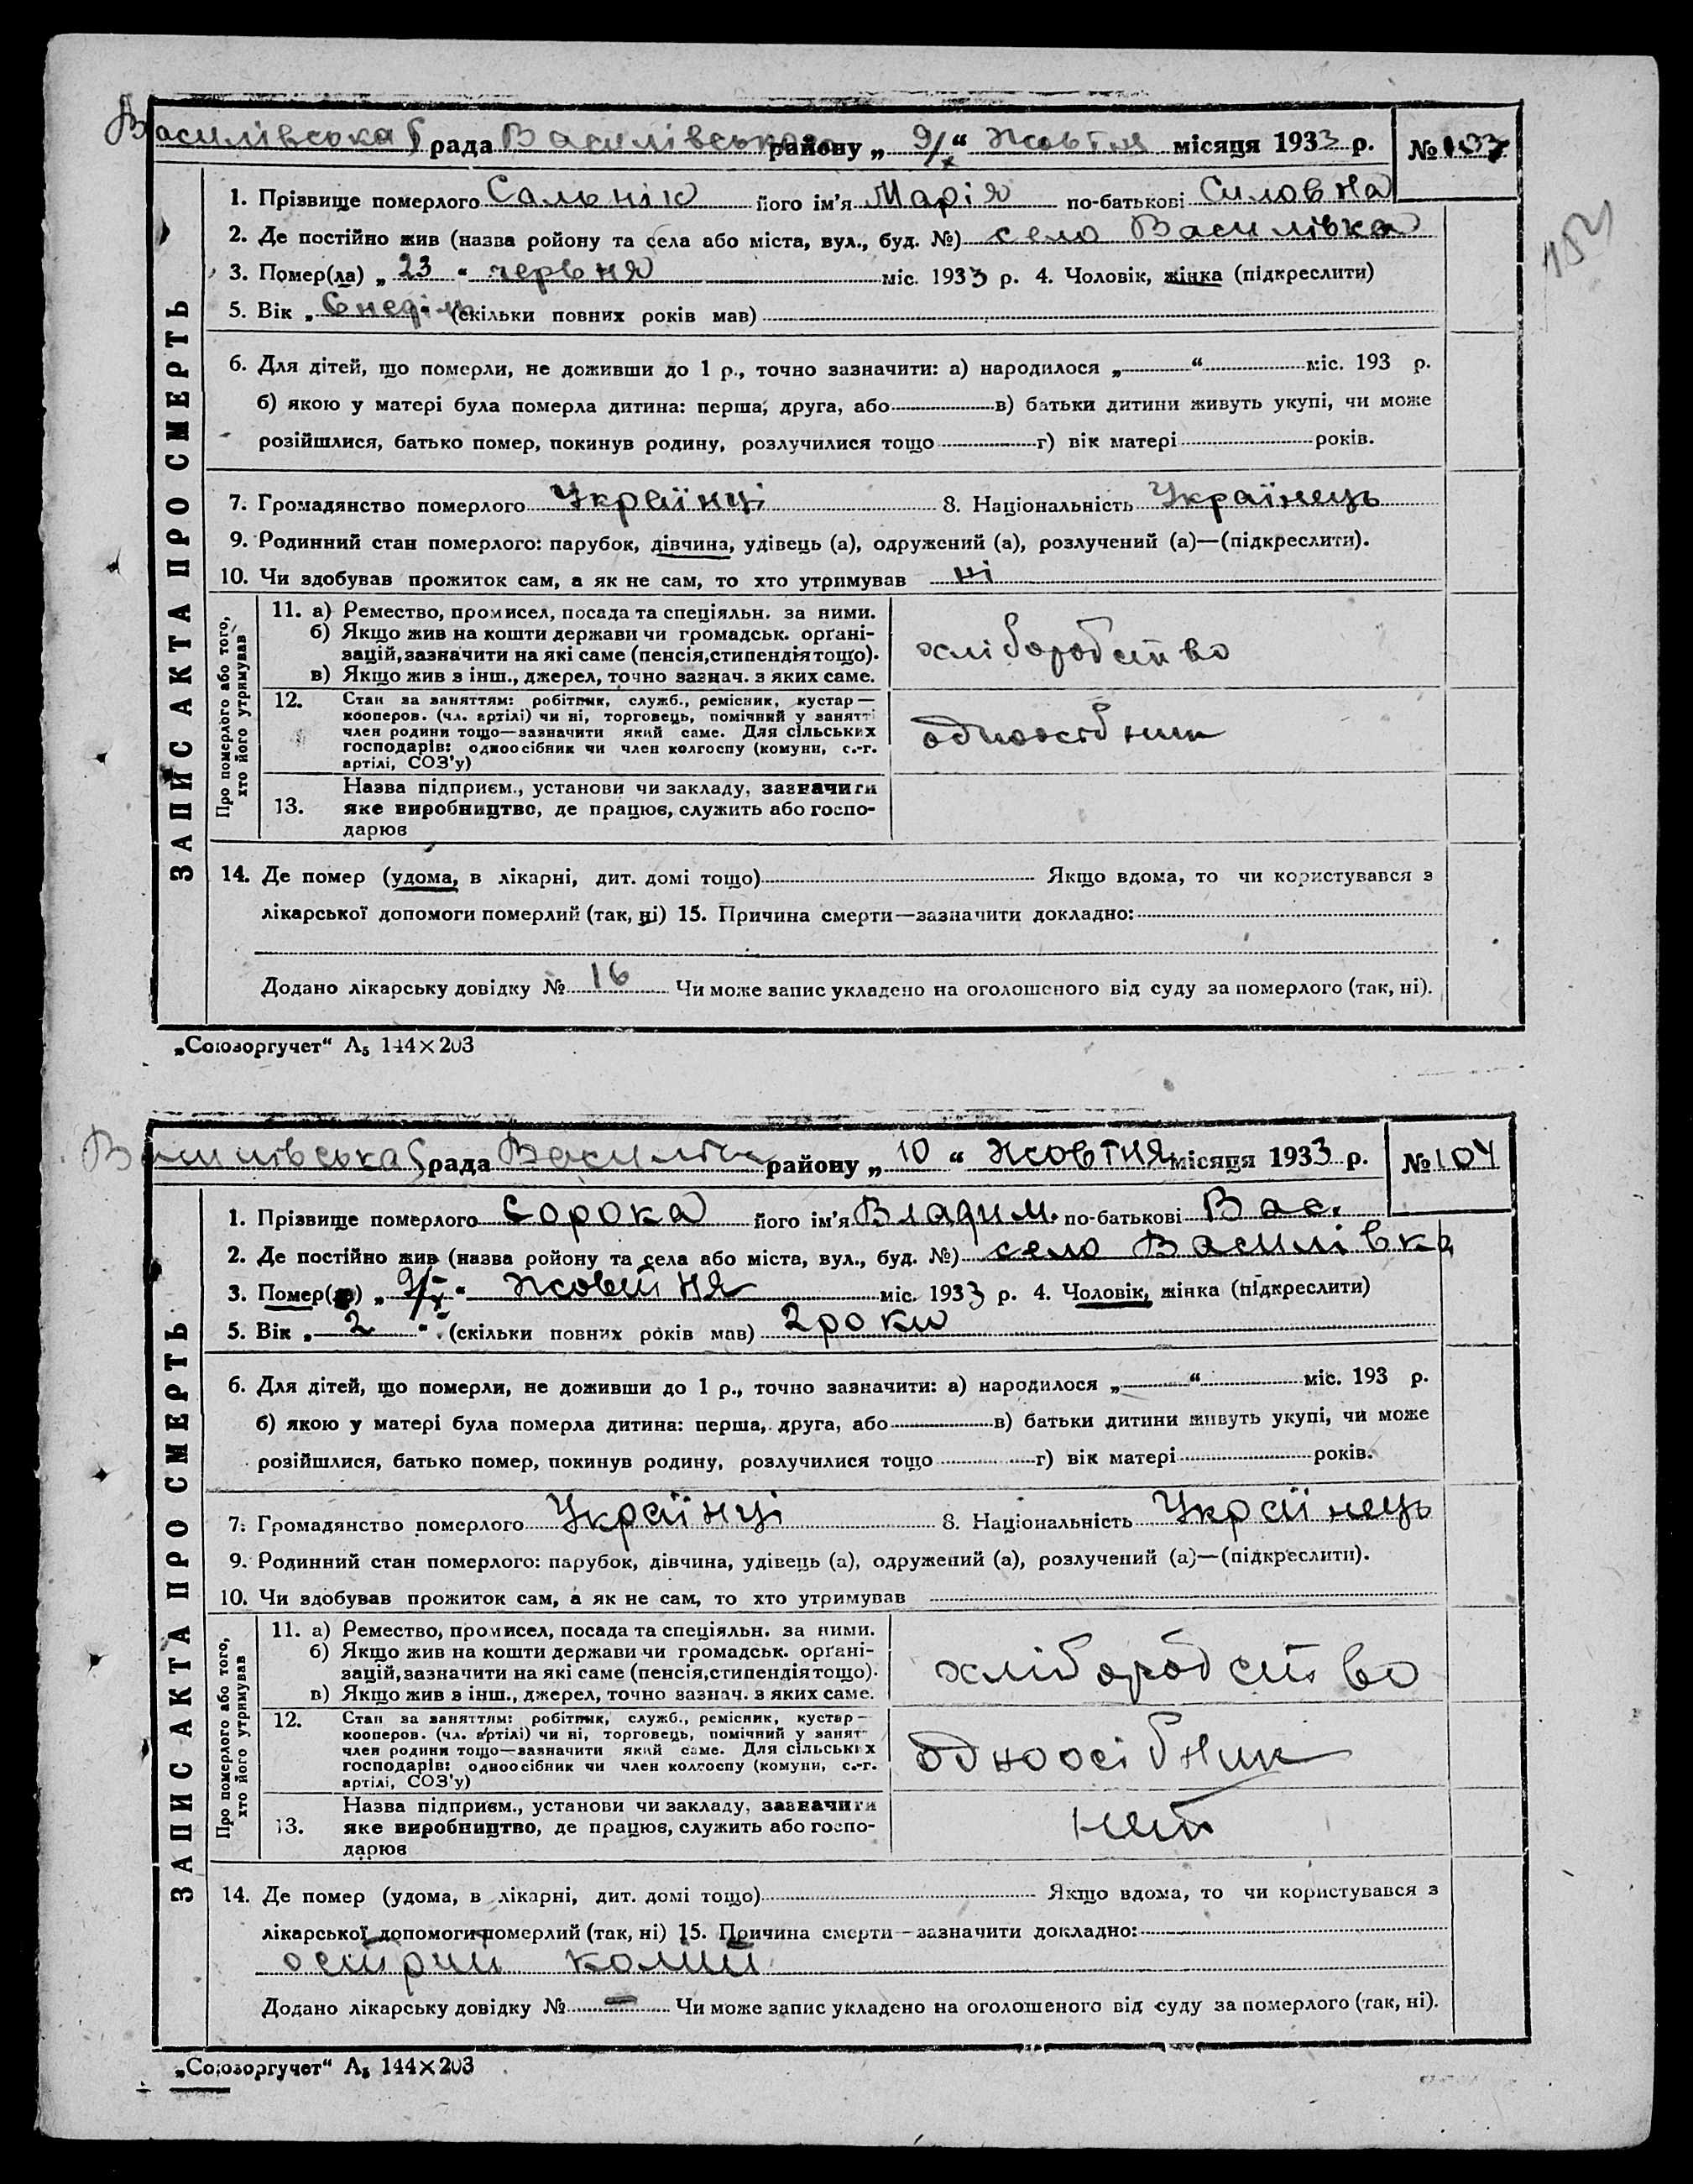 Василівська рада Василівського району „ 9/х “ Жовтня місяця 1933 р. № 103
1. Прізвище померлого Сальнік його ім'я Марія по-батькові Силовна
2. Де постійно жив (назва ройону та села або міста, вул., буд. №) село Василівка
3. Помер(ла) „ 23 “ червня міс. 1933 р. 4. Чоловік, жінка (підкреслити)
5. Вік „ 6 неділь (скільки повних років мав)
6. Для дітей, що померли, не доживши до 1 р., точно зазначити: а) народилося „ “ міс. 193 р.
б) якою у матері була померла дитина: перша, друга, або в) батьки дитини живуть укупі, чи може
розійшлися, батько помер, покинув родину, розлучилися тощо г) вік матері років.
7. Громадянство померлого Українці 8. Національність Українець
9. Родинний стан померлого: парубок, дівчина, удівець (а), одружений (а), розлучений (а)—(підкреслити).
10. Чи здобував прожиток сам, а як не сам, то хто утримував ні
ЗАПИС АКТА ПРО СМЕРТЬ
Про померлого або того,
хто його утримував
11. а) Ремество, промисел, посада та спеціяльн. за ними.
б) Якщо жив на кошти держави чи громадськ. орґані-
зацій, зазначити на які саме (пенсія, стипендія тощо).
в) Якщо жив з інш., джерел, точно зазнач. з яких саме.
хліборобство
12. Стан за заняттям: робітник, служб., ремісник, кустар—
кооперов. (чл. артілі) чи ні, торговець, помічний у занятті
член родини тощо—зазначити який саме. Для сільських
господарів: одноосібник чи член колгоспу (комуни, с.-г.
артілі, СОЗ'у)
одноосібник
13. Назва підприєм., установи чи закладу, зазначити
яке виробництво, де працює, служить або госпо-
дарює
14. Де помер (удома, в лікарні, дит. домі тощо) Якщо вдома, то чи користувався з
лікарської допомоги померлий (так, ні) 15. Причина смерти—зазначити докладно:
Додано лікарську довідку № 16 Чи може запис укладено на оголошеного від суду за померлого (так, ні).
„Союзоргучет“ А₅ 144×203
Василівська рада району „ 10 “ Жовтня місяця 1933 р. № 104
1. Прізвище померлого Сорока його ім'я Владим. по-батькові Вас.
2. Де постійно жив (назва ройону та села або міста, вул., буд. №) село Василівка
3. Помер( ) „ 9/х “ Жовтня міс. 1933 р. 4. Чоловік, жінка (підкреслити)
5. Вік „ 2 “ (скільки повних років мав) 2 роки
6. Для дітей, що померли, не доживши до 1 р., точно зазначити: а) народилося „ “ міс. 193 р.
б) якою у матері була померла дитина: перша, друга, або в) батьки дитини живуть укупі, чи може
розійшлися, батько помер, покинув родину, розлучилися тощо г) вік матері років.
7. Громадянство померлого Українці 8. Національність Українець
9. Родинний стан померлого: парубок, дівчина, удівець (а), одружений (а), розлучений (а)—(підкреслити).
10. Чи здобував прожиток сам, а як не сам, то хто утримував
ЗАПИС АКТА ПРО СМЕРТЬ
Про померлого або того,
хто його утримував
11. а) Ремество, промисел, посада та спеціяльн. за ними.
б) Якщо жив на кошти держави чи громадськ. орґані-
зацій, зазначити на які саме (пенсія, стипендія тощо).
в) Якщо жив з інш., джерел, точно зазнач. з яких саме.
хліборобство
12. Стан за заняттям: робітник, служб., ремісник, кустар—
кооперов. (чл. артілі) чи ні, торговець, помічний у занятт
член родини тощо—зазначити який саме. Для сільських
господарів: одноосібник чи член колгоспу (комуни, с.-г.
артілі, СОЗ'у)
одноосібник
13. Назва підприєм., установи чи закладу, зазначити
яке виробництво, де працює, служить або госпо-
дарює
нет
14. Де помер (удома, в лікарні, дит. домі тощо) Якщо вдома, то чи користувався з
лікарської допомоги померлий (так, ні) 15. Причина смерти—зазначити докладно:
острий коліт
Додано лікарську довідку № — Чи може запис укладено на оголошеного від суду за померлого (так, ні).
„Союзоргучет“ А₅ 144×203